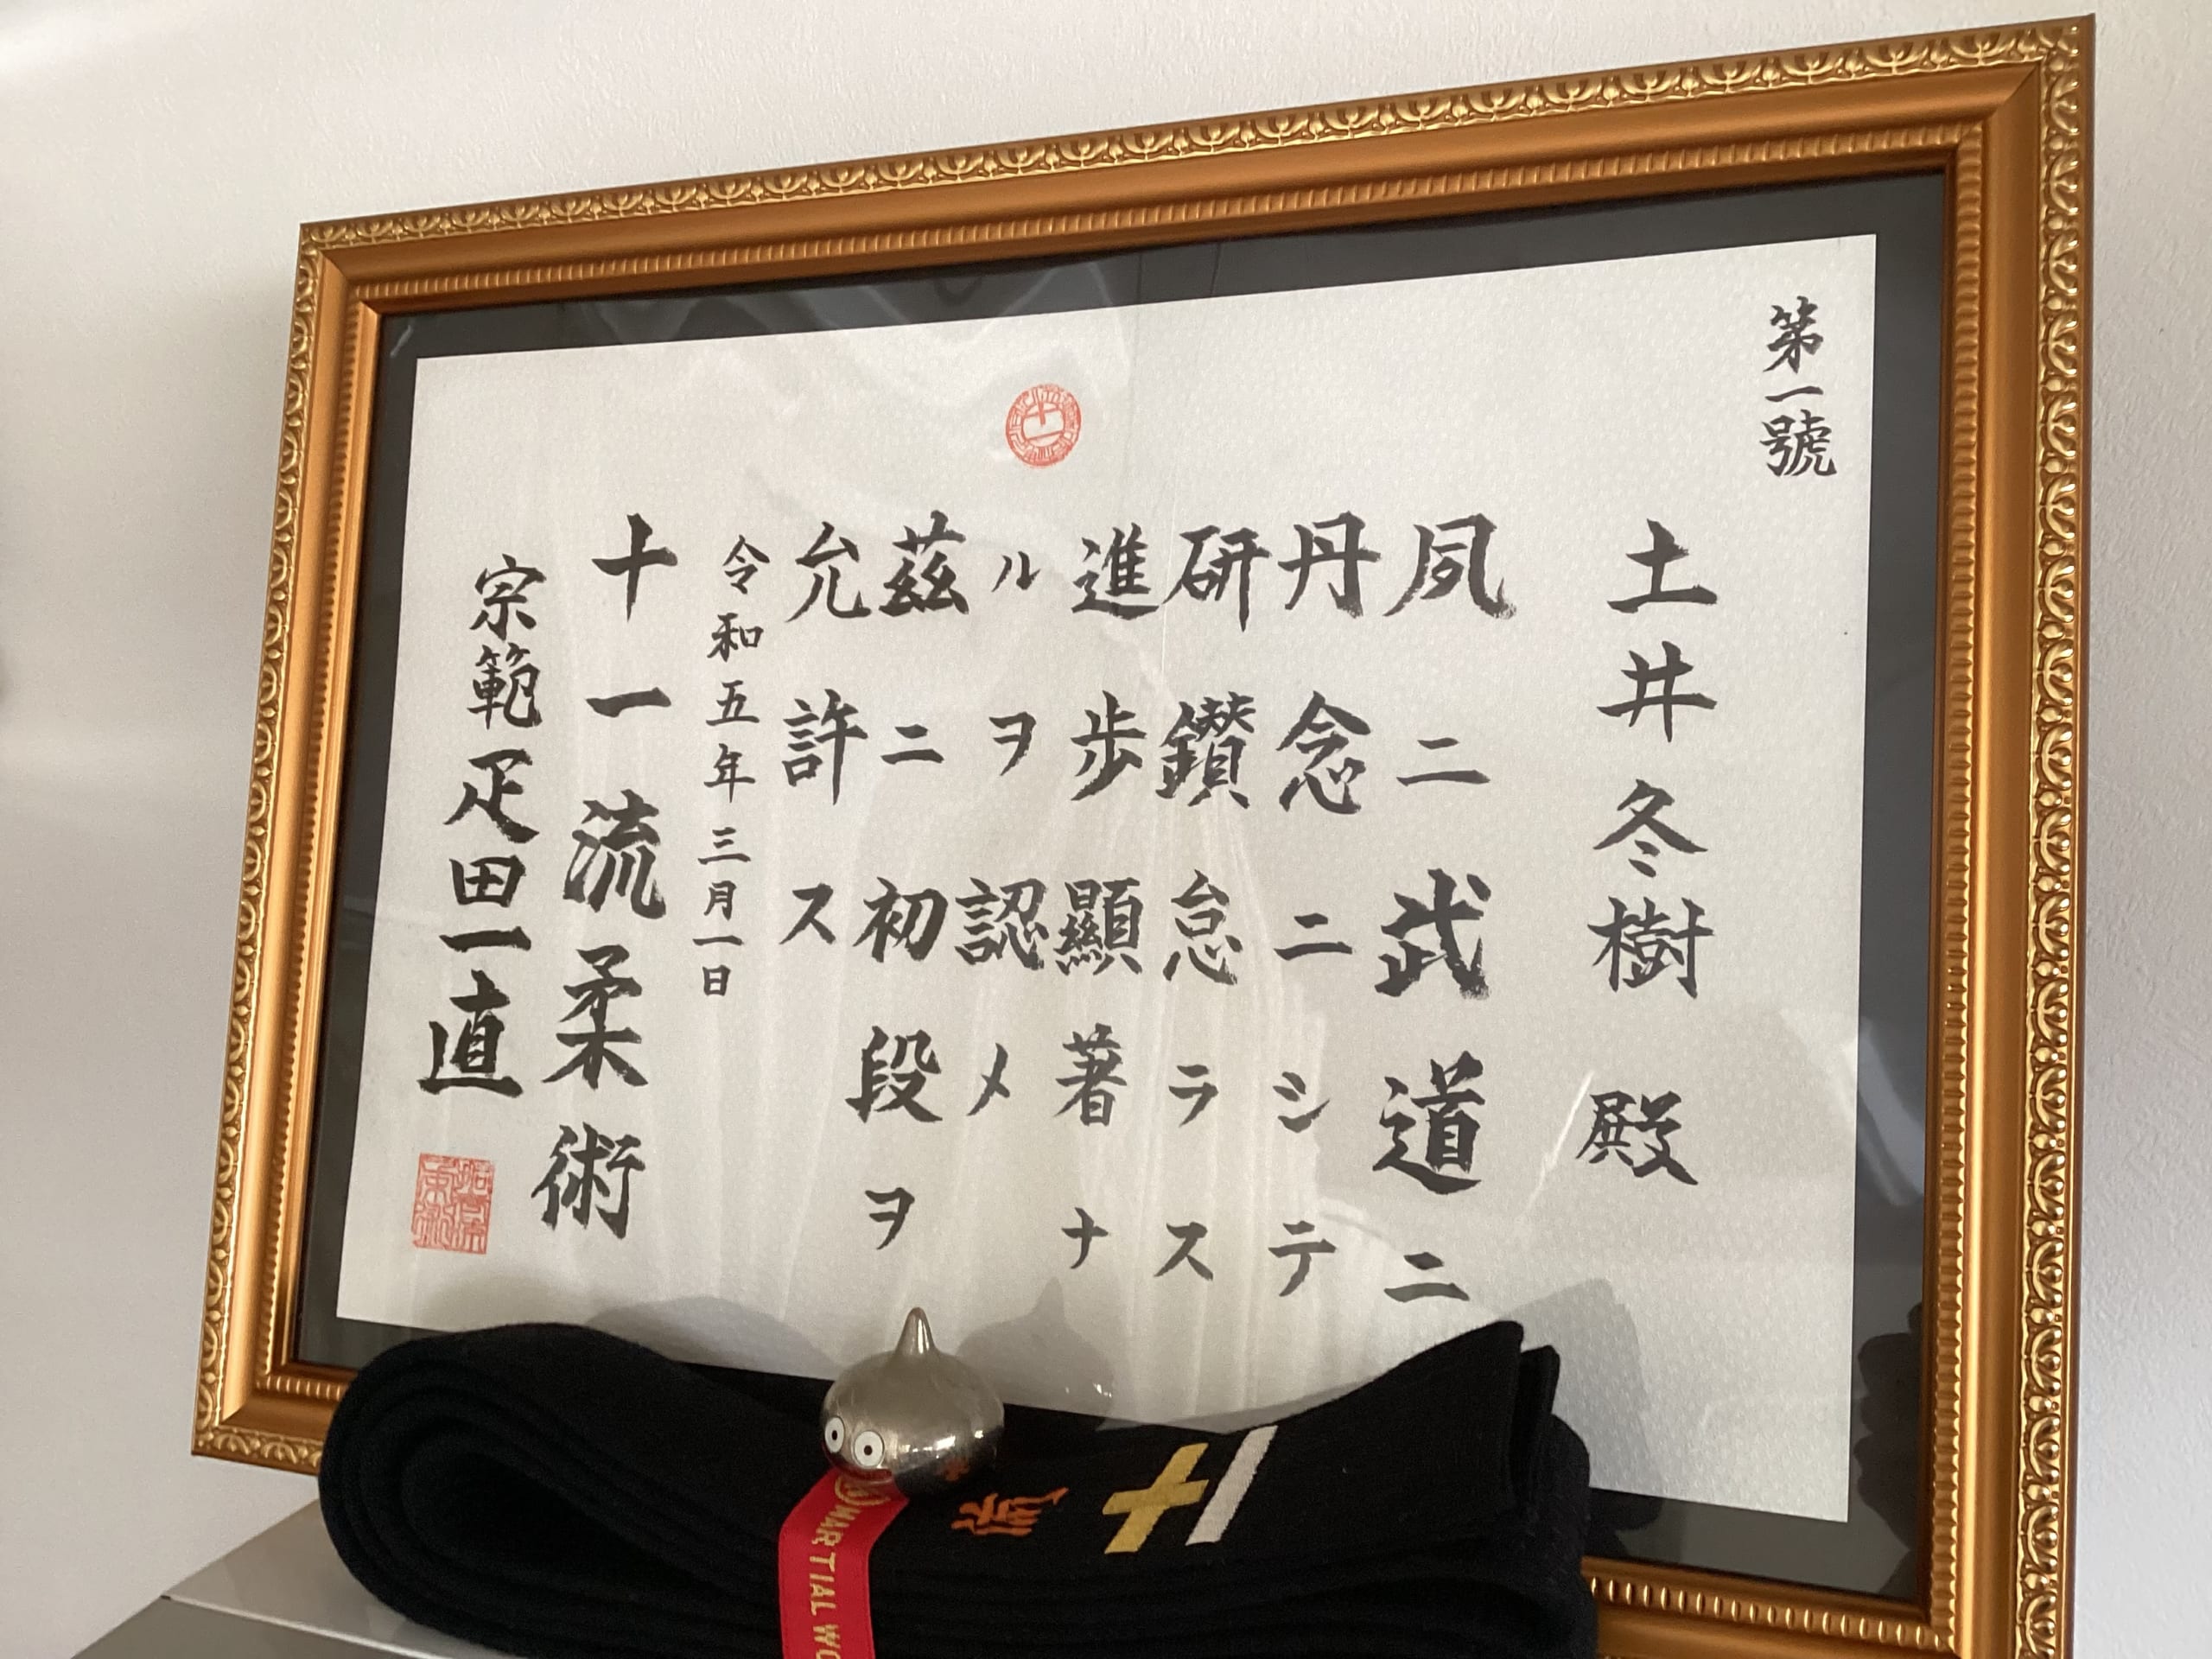 第一號
土井冬樹 殿
夙ニ武道ニ
丹念ニシテ
研鑽怠ラス
進歩顯著ナ
ルヲ認メ
茲ニ初段ヲ
允許ス
令和五年三月一日
十一流柔術
宗範疋田一直
十一
流
MARTIAL WO